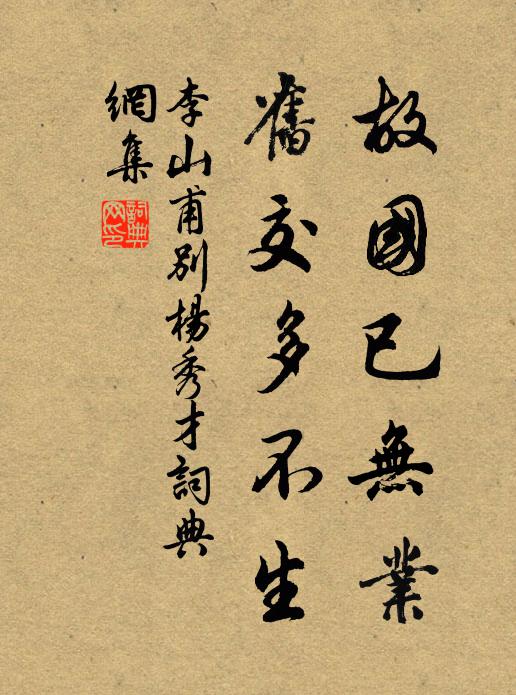 故國已無業
舊交多不生
李山甫別楊秀才詞典
網集
詞典
网印